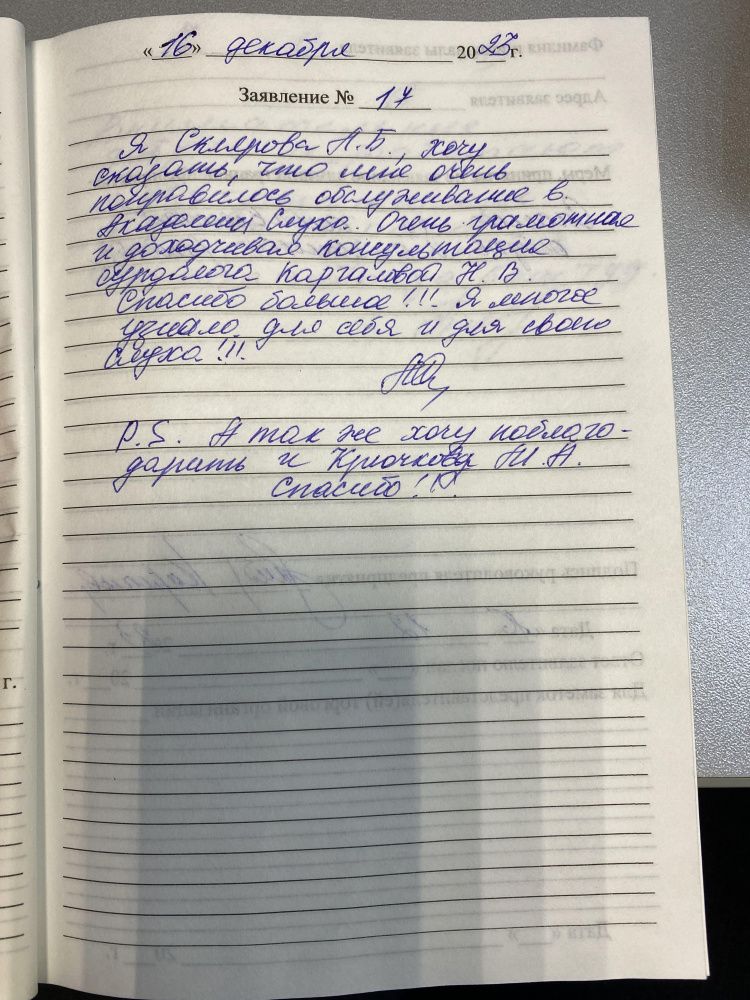 «16» декабря 2023г.
Заявление № 17
Я, Склярова Н.Б., хочу
сказать, что мне очень
понравилось обслуживание в
Академии Слуха. Очень грамотная
и доходчивая консультация
сурдолога Каргаловой Н.В.
Спасибо большое!!! Я многое
узнала для себя и для своего
слуха!!!
P.S. А так же хочу поблаго-
дарить и Крючкову М.А.
Спасибо!!!
г.